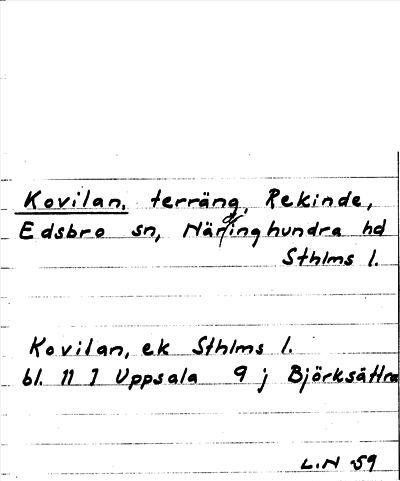 Kovilan, terräng, Rekinde,
Edsbro sn, Närdinghundra hd
Sthlms l.
Kovilan, ek Sthlms l.
bl. 11 I Uppsala 9 j Björksättra
L.N 59